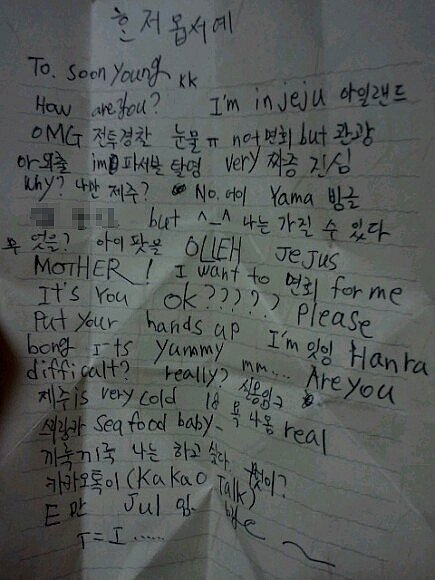 혼저옵서예
To. soon young kk
How are you? I'm in jeju 아일랜드
OMG 전투경찰 눈물 ㅠ not 면회 but 관광
아 외출 im 파서블 탈영 very 짜증 진심
Why? 나만 제주? No. 어이 Yama 빙글
but ^_^ 나는 가질 수 있다
무엇을? 아이팟을 OLLEH JeJus
MOTHER! I want to 면회 for me
It's You ok????? Please
Put your hands up I'm 잇잉 Hanra
bong I-ts yummy mm... Are you
difficalt? really? 신용입구
제주 is very cold 18 욕 나옴 real
색랑카 sea food baby-
끼룩끼룩 나는 하고 싶다. 무엇이?
카카오톡이 (KaKao Talk)
E만 Jul 임. bye
T=I......